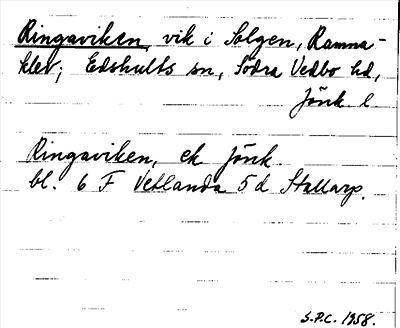 Ringaviken, vik i Solgen, Ramma-
klev; Edshults sn, Södra Vedbo hd,
Jönk l
Ringaviken, ek Jönk.
bl. 6 F Vetlanda 5 d Stallarp.
S.P.C. 1958.